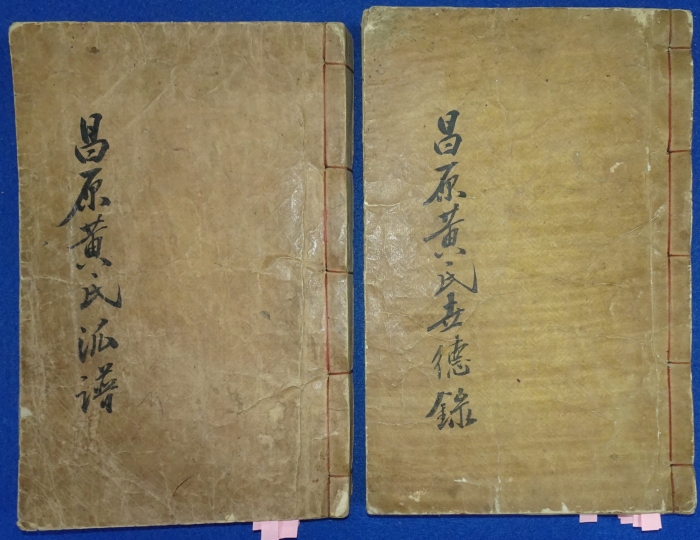 昌原黃氏派譜
昌原黃氏世德錄